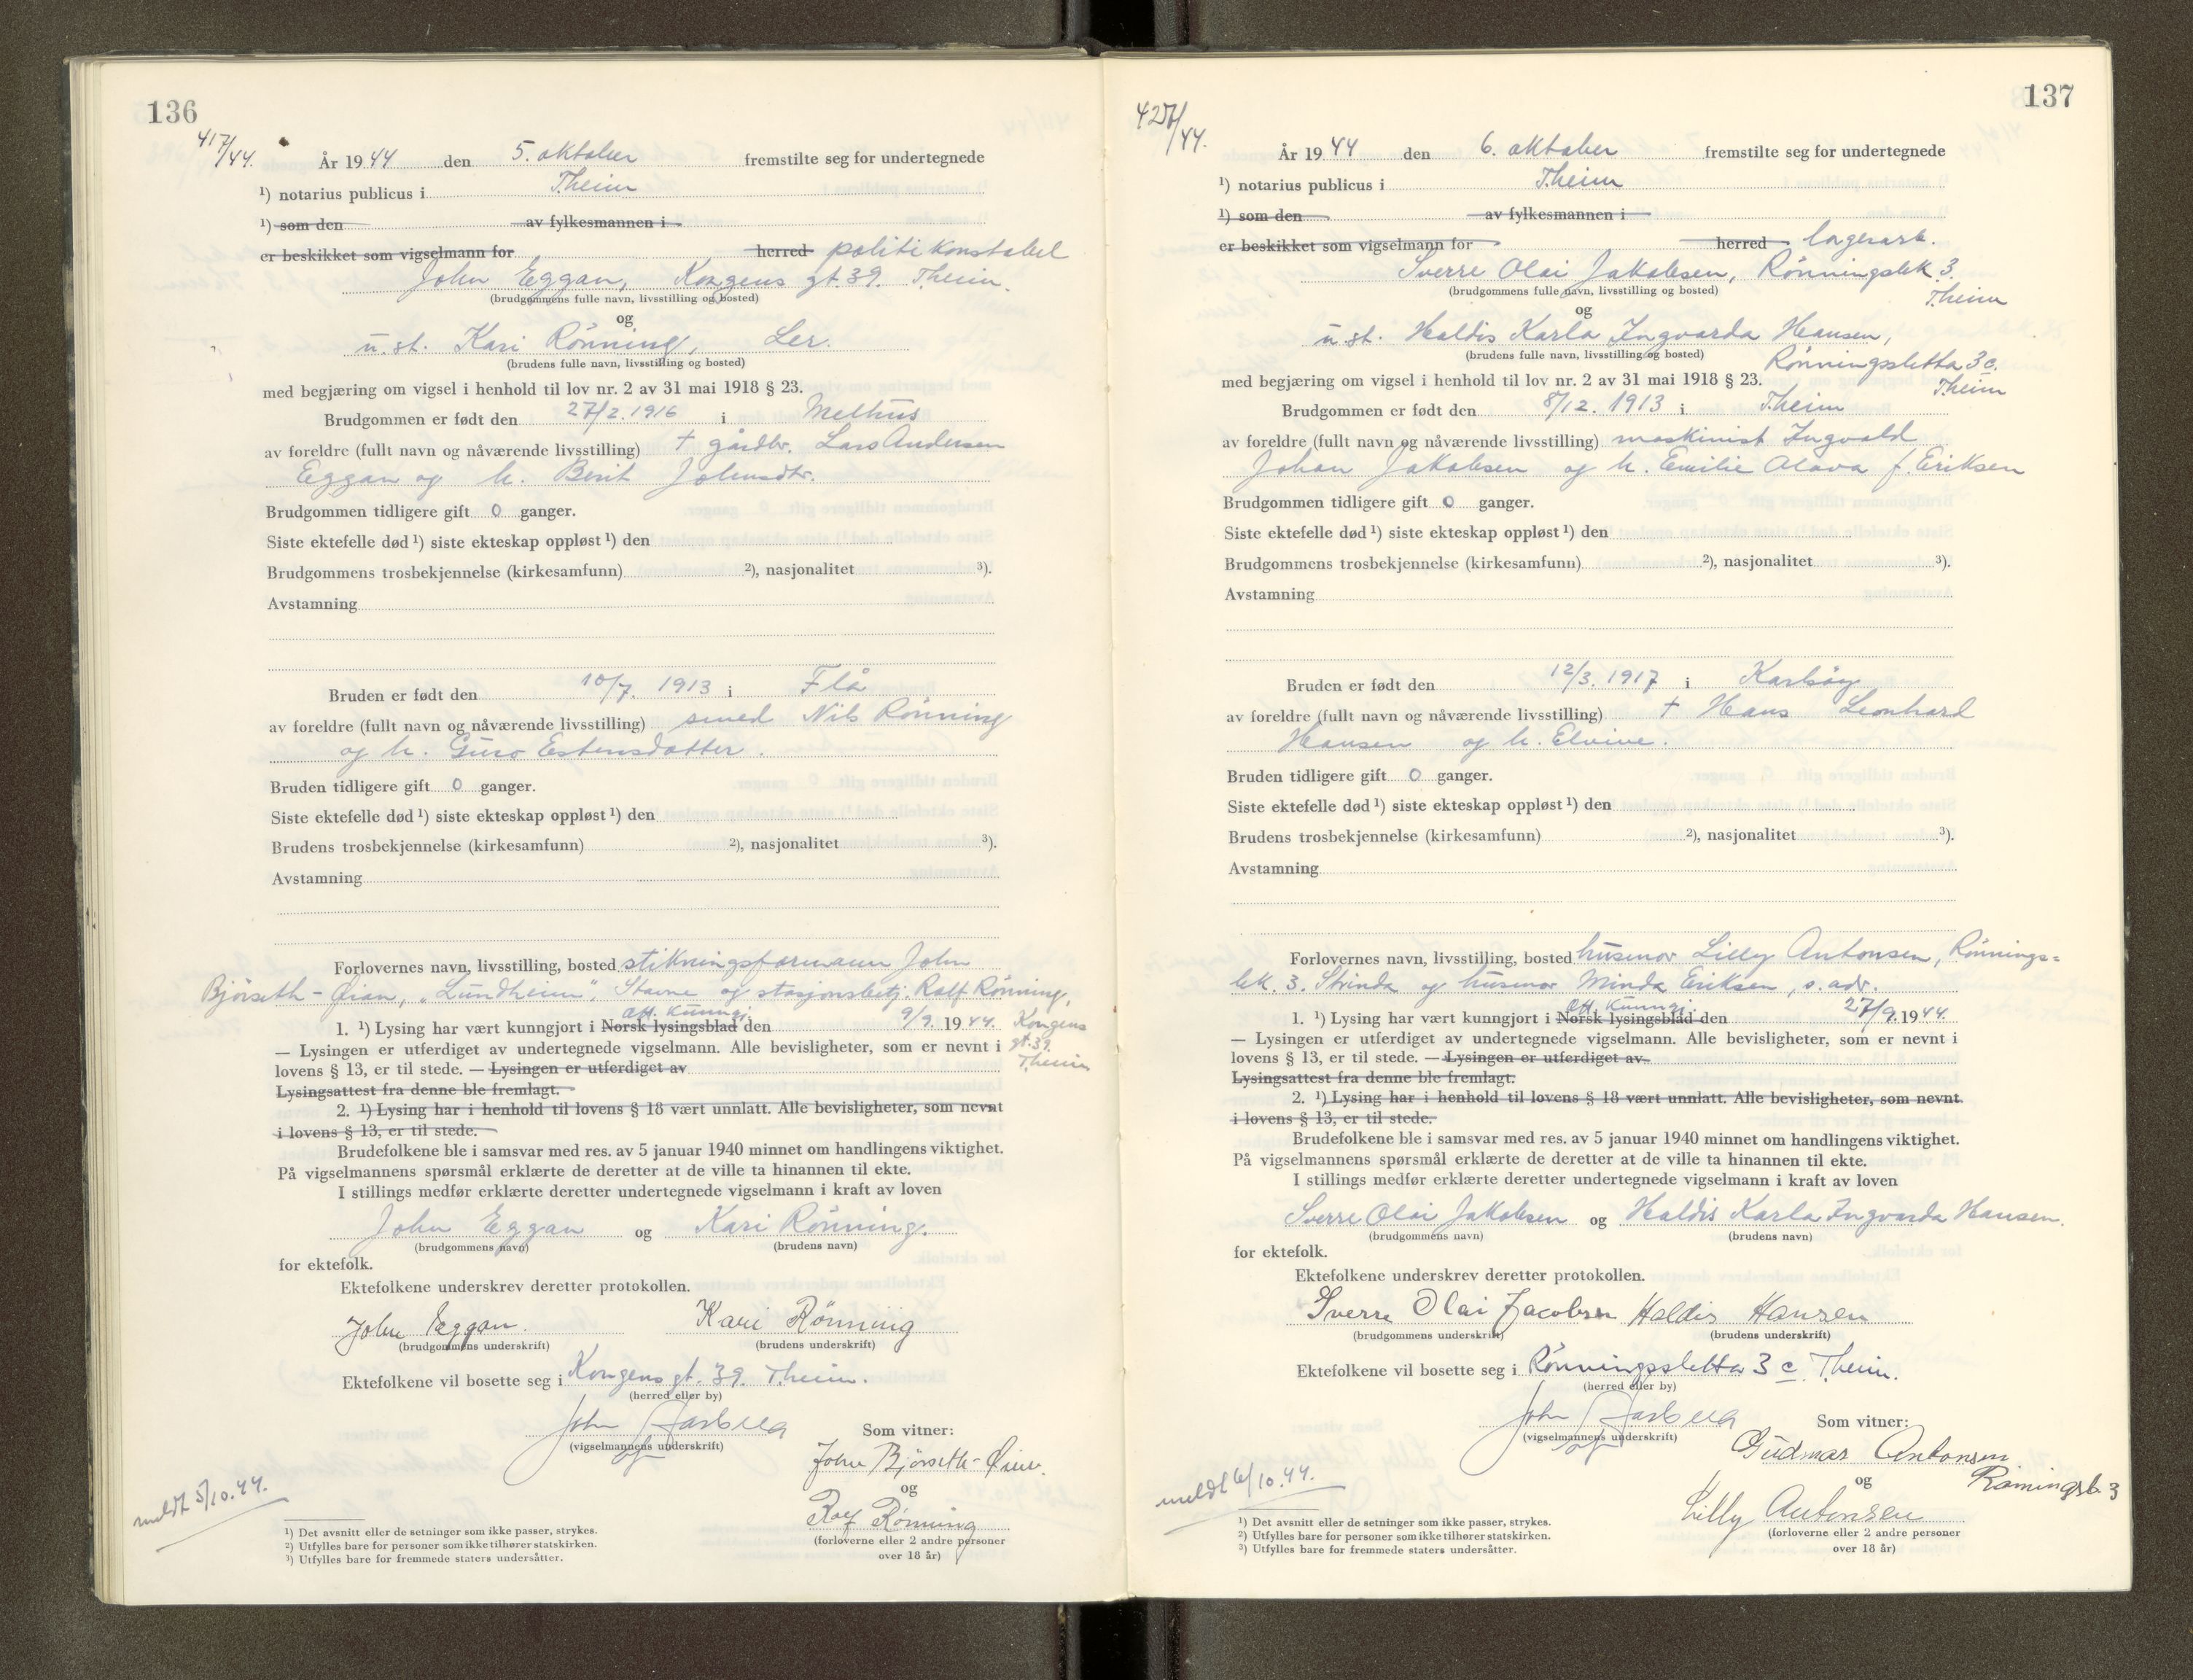 136
417/44.
År 1944 den 5. oktober fremstilte seg for undertegnede
¹) notarius publicus i T.heim
¹) som den av fylkesmannen i
er beskikket som vigselmann for herred politikonstabel
John Eggan, Kongens gt. 39. T.heim.
(brudgommens fulle navn, livsstilling og bosted)
og
u. st. Kari Rönning, Ler.
(brudens fulle navn, livsstilling og bosted)
med begjæring om vigsel i henhold til lov nr. 2 av 31 mai 1918 § 23.
Brudgommen er født den 27/2. 1916 i Melhus
av foreldre (fullt navn og nåværende livsstilling) † gårdbr. Lars Andersen
Eggan og h. Berit Johnsdtr.
Brudgommen tidligere gift 0 ganger.
Siste ektefelle død ¹) siste ekteskap oppløst ¹) den
Brudgommens trosbekjennelse (kirkesamfunn) ²), nasjonalitet ³).
Avstamning
Bruden er født den 10/7. 1913 i Flå
av foreldre (fullt navn og nåværende livsstilling) smed Nils Rönning
og h. Guro Estensdatter.
Bruden tidligere gift 0 ganger.
Siste ektefelle død ¹) siste ekteskap oppløst ¹) den
Brudens trosbekjennelse (kirkesamfunn) ²), nasjonalitet ³).
Avstamning
Forlovernes navn, livsstilling, bosted stikningsformann John
Björseth-Öian, „Lundheim", Stavne og stasjonsbetj. Ralf Rönning,
Off. Kunngj.
1. ¹) Lysing har vært kunngjort i Norsk lysingsblad den 9/9. 1944. Kongens
— Lysingen er utferdiget av undertegnede vigselmann. Alle bevisligheter, som er nevnt i gt. 39.
lovens § 13, er til stede. — Lysingen er utferdiget av T.heim
Lysingsattest fra denne ble fremlagt.
2. ¹) Lysing har i henhold til lovens § 18 vært unnlatt. Alle bevisligheter, som nevnt
i lovens § 13, er til stede.
Brudefolkene ble i samsvar med res. av 5 januar 1940 minnet om handlingens viktighet.
På vigselmannens spørsmål erklærte de deretter at de ville ta hinannen til ekte.
I stillings medfør erklærte deretter undertegnede vigselmann i kraft av loven
John Eggan og Kari Rönning.
(brudgommens navn) (brudens navn)
for ektefolk.
Ektefolkene underskrev deretter protokollen.
John Eggan. Kari Rönning
(brudgommens underskrift) (brudens underskrift)
Ektefolkene vil bosette seg i Kongens gt. 39. T.heim.
(herred eller by)
John
(vigselmannens underskrift)
Som vitner:
John Björseth-Öien.
og
Ralf Rönning
(forloverne eller 2 andre personer
over 18 år)
meldt 5/10.44.
¹) Det avsnitt eller de setninger som ikke passer, strykes.
²) Utfylles bare for personer som ikke tilhører statskirken.
³) Utfylles bare for fremmede staters undersåtter.
137
427/44.
År 1944 den 6. oktober fremstilte seg for undertegnede
¹) notarius publicus i T.heim
¹) som den av fylkesmannen i
er beskikket som vigselmann for herred lagerarb.
Sverre Olai Jakobsen, Rönningsbk. 3.
(brudgommens fulle navn, livsstilling og bosted) T.heim
og
u. st. Haldis Karla Ingvarda Hansen,
(brudens fulle navn, livsstilling og bosted) Rönningsletta 3c.
med begjæring om vigsel i henhold til lov nr. 2 av 31 mai 1918 § 23. T.heim
Brudgommen er født den 8/12. 1913 i T.heim
av foreldre (fullt navn og nåværende livsstilling) maskinist Ingvald
Johan Jakobsen og h. Emilie Olava f. Eriksen
Brudgommen tidligere gift 0 ganger.
Siste ektefelle død ¹) siste ekteskap oppløst ¹) den
Brudgommens trosbekjennelse (kirkesamfunn) ²), nasjonalitet ³).
Avstamning
Bruden er født den 12/3. 1917 i Karlsöy
av foreldre (fullt navn og nåværende livsstilling) † Hans Leonhard
Hansen og h. Elvine.
Bruden tidligere gift 0 ganger.
Siste ektefelle død ¹) siste ekteskap oppløst ¹) den
Brudens trosbekjennelse (kirkesamfunn) ²), nasjonalitet ³).
Avstamning
Forlovernes navn, livsstilling, bosted husmor Lilly Antonsen, Rönnings=
bk. 3. Strinda og husmor Minda Eriksen, s. adr.
Off. Kunngj.
1. ¹) Lysing har vært kunngjort i Norsk lysingsblad den 27/9. 1944.
— Lysingen er utferdiget av undertegnede vigselmann. Alle bevisligheter, som er nevnt i
lovens § 13, er til stede. — Lysingen er utferdiget av
Lysingsattest fra denne ble fremlagt.
2. ¹) Lysing har i henhold til lovens § 18 vært unnlatt. Alle bevisligheter, som nevnt
i lovens § 13, er til stede.
Brudefolkene ble i samsvar med res. av 5 januar 1940 minnet om handlingens viktighet.
På vigselmannens spørsmål erklærte de deretter at de ville ta hinannen til ekte.
I stillings medfør erklærte deretter undertegnede vigselmann i kraft av loven
Sverre Olai Jakobsen og Haldis Karla Ingvarda Hansen.
(brudgommens navn) (brudens navn)
for ektefolk.
Ektefolkene underskrev deretter protokollen.
Sverre Olai Jacobsen Haldis Hansen
(brudgommens underskrift) (brudens underskrift)
Ektefolkene vil bosette seg i Rönningssletta 3 c. T.heim.
(herred eller by)
John
(vigselmannens underskrift)
Som vitner:
Gudmar Antonsen
og Röningsb. 3
Lilly Antonsen
(forloverne eller 2 andre personer
over 18 år)
meldt 6/10.44.
¹) Det avsnitt eller de setninger som ikke passer, strykes.
²) Utfylles bare for personer som ikke tilhører statskirken.
³) Utfylles bare for fremmede staters undersåtter.